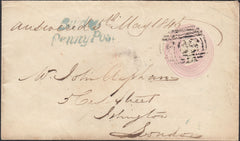 answered 5th May 1845
Penny Post
Mr John Alphan
5 Cecil Street
Islington
London